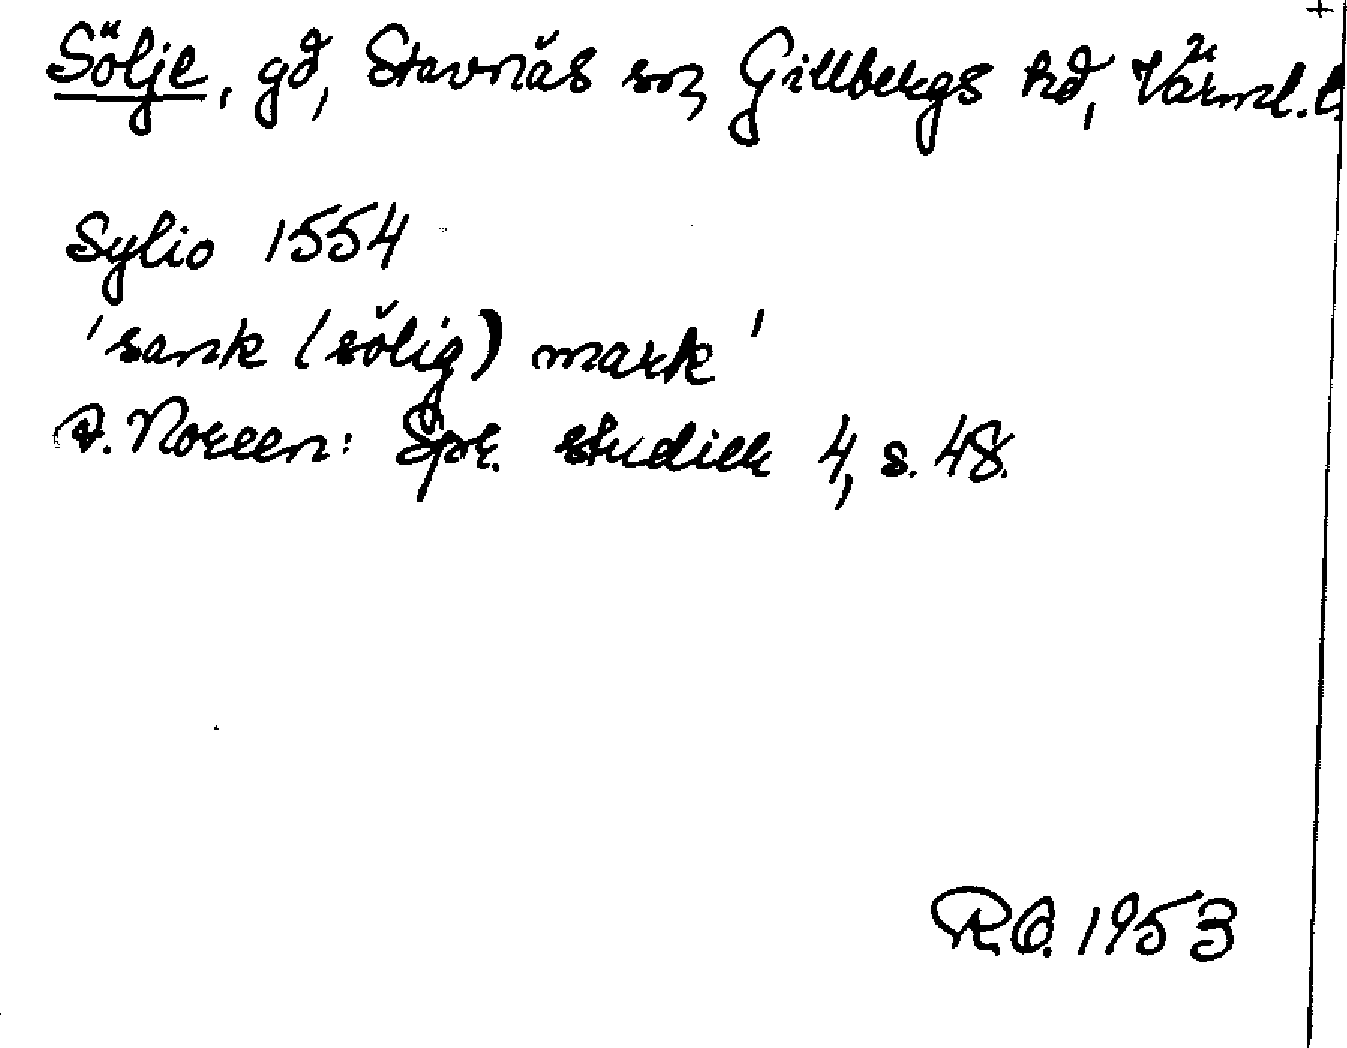 Sölje, gd, Stavnäs sn, Gillbergs hd, Värml. l.
Sylio 1554
'sank (sölig) mark'
A. Noreen: Spr. studier 4, s. 48.
R.O. 1953